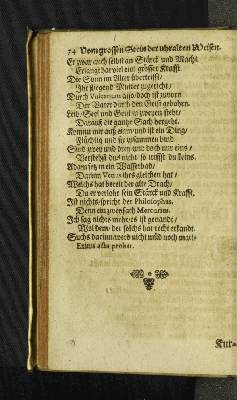 74 Vom grossen Stein der uhralten Weisen.
Er zwar auch selbst an Stärck und Macht
Erlangt hat viel eine grösser Krafft.
Die Sonn im Alter übertrifft/
Ihr fliegend Mutter zugericht/
Durch Vulcanum also doch ist zuvorn
Der Vater durch den Geist gebohrn.
Leib/ Seel und Geist in zweyen stehet/
Darauß die gantze Sach hergehet.
Kommt auß einm und ist ein Ding/
Flüchtig und fix zusammen bind
Sind zwey und drey und doch nur eins/
Verstehst dus nicht/ so triffst du keins.
Adam setz in ein Wasserbad/
Darinn Venus ihrs gleichen hat/
Welchs hat bereit der alte Drach/
Da er verlohr sein Stärck und Krafft.
Ist nichts/ spricht der Philosophus,
Denn ein zweyfach Mercurius.
Ich sag nichts mehr/ es ist genandt/
Wol dem/ der solchs hat recht erkandt.
Suchs darinn/ werd nicht müd noch matt/
Exitus acta probat.
Kur-